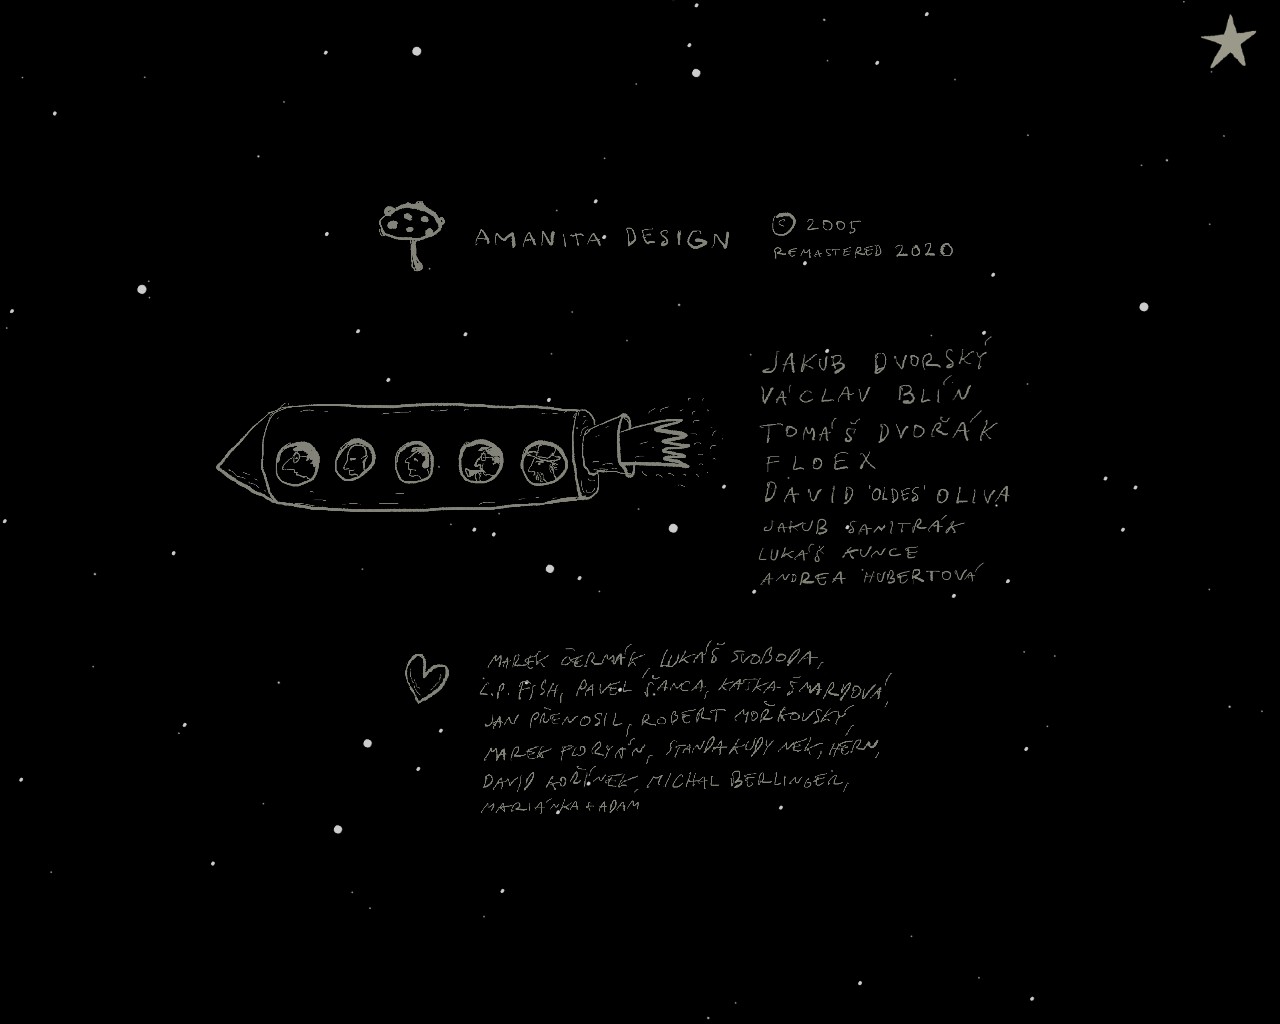 AMANITA DESIGN
© 2005
REMASTERED 2020
JAKUB DVORSKÝ
VÁCLAV BLÍN
TOMÁŠ DVOŘÁK
FLOEX
DAVID 'OLDES' OLIVA
JAKUB SANITRÁK
LUKÁŠ KUNCE
ANDREA HUBERTOVÁ
MAREK ČERMÁK, LUKÁŠ SVOBODA,
L.P. FISH, PAVEL ŠANCA, KATKA ŠMARDOVÁ,
JAN PŘENOSIL, ROBERT MOŘKOVSKÝ,
MAREK FLORYÁN, STANDA KUDYNEK, HERN,
DAVID KOŘÍNEK, MICHAL BERLINGER,
MARIÁNKA + ADAM